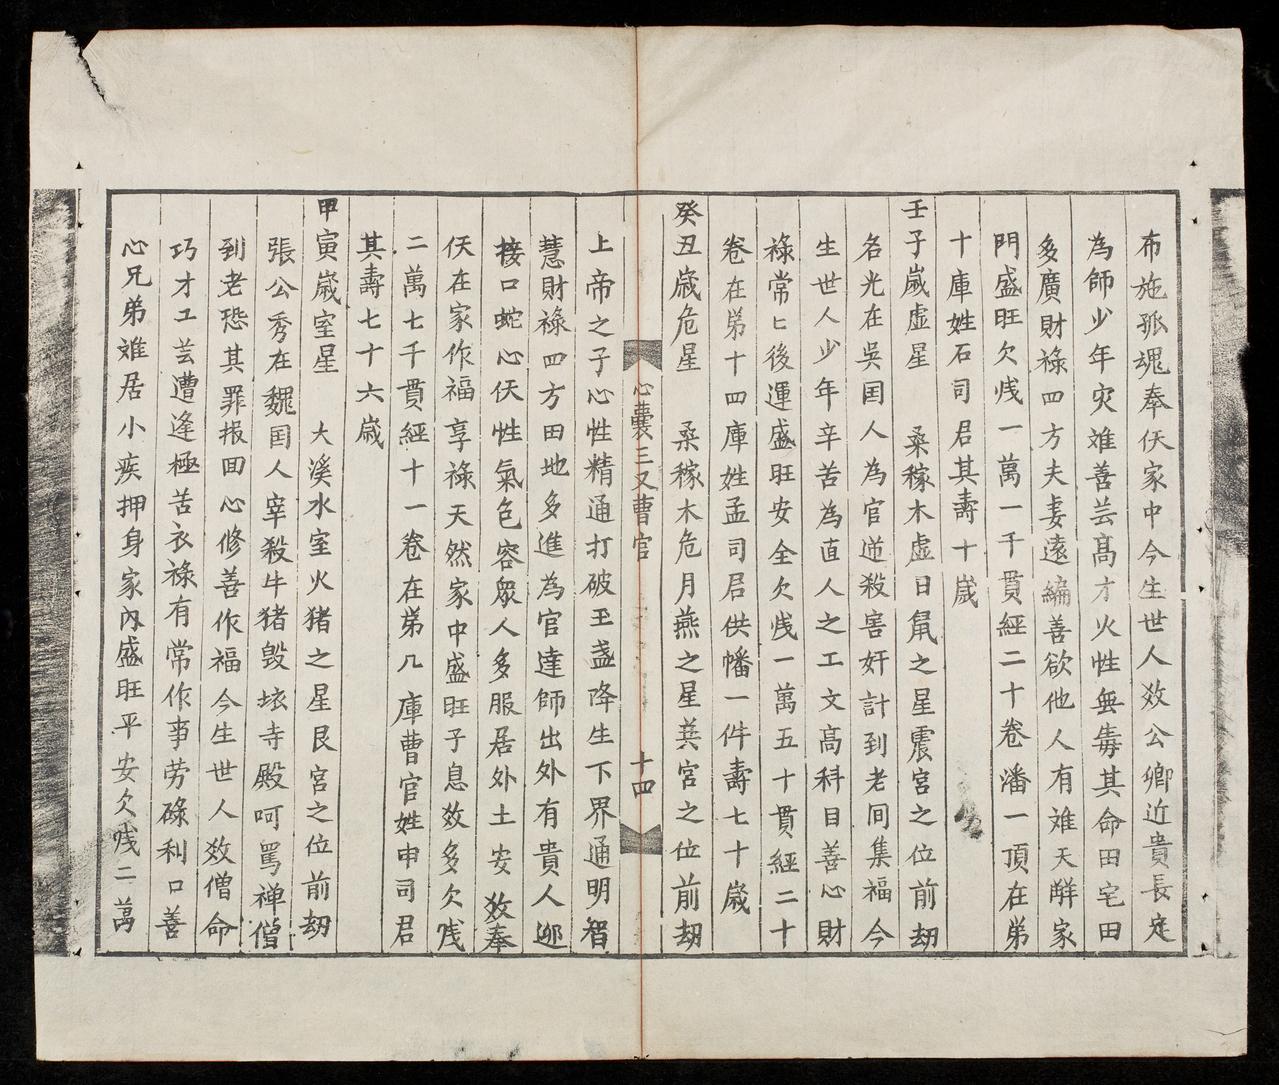 布施孤魂奉仸家中今生世人效公卿近貴長定
為師少年灾难善芸髙才火性無毒其命田宅田
多廣財祿四方夫妻遠編善欲他人有难天觧家
門盛旺欠㦮一萬一千貫經二十卷潘一頂在弟
十庫姓石司君其壽十歲
壬子歲虛星　桑稼木虛日鼠之星震宮之位前劫
名光在吳囯人為官逆殺害奸計到老间集福今
生世人少年辛苦為直人之工文高科目善心財
祿常匕後運盛旺安全欠㦮一萬五十貫經二十
卷在弟十四庫姓孟司君供幡一件壽七十歲
癸丑歲危星　桑稼木危月燕之星㢲宮之位前劫
心囊三又曹官　十四
上帝之子心性精通打破玉盞降生下界通明智
慧財祿四方田地多進為官達師出外有貴人迎
接口蛇心仸性氣色容衆人多服居外土安效奉
仸在家作福享祿天然家中盛旺子息效多欠㦮
二萬七千貫經十一卷在弟几庫曹官姓申司君
其壽七十六歲
甲寅歲室星　大溪水室火猪之星艮宮之位前劫
張公秀在魏囯人宰殺牛猪毁坏寺殿呵罵禅僧
到老恐其罪报囬心修善作福今生世人效僧命
巧才工芸遭逢極苦衣祿有常作事劳碌利口善
心兄弟难居小疾押身家內盛旺平安欠㦮二萬